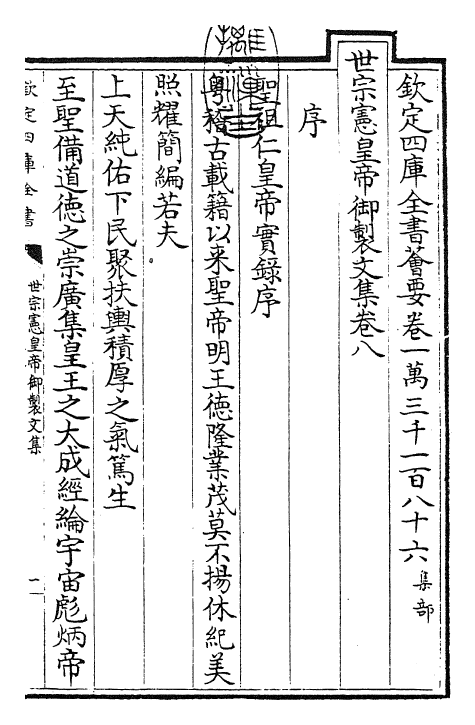 欽定四庫全書薈要卷一萬三千一百八十六集部
世宗憲皇帝御製文集卷八
序
聖祖仁皇帝實錄序
粵稽古載籍以来聖帝明王德隆業茂莫不揚休紀美
照耀簡編若夫
上天純佑下民聚扶輿積厚之氣篤生
至聖備道德之崇廣集皇王之大成經綸宇宙彪炳帝
欽定四庫全書
世宗憲皇帝御製文集
一